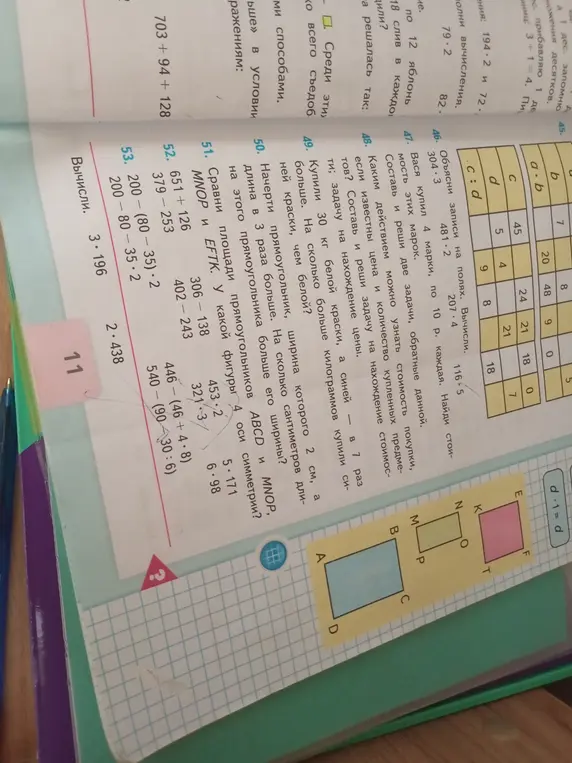 703 + 94 + 128
ми способами.
ьше» в услови
ражениям:
Среди эти
ко всего съедоб
по 12 яблонь
18 слив в каждо
а решалась так:
79 · 2
82
194 · 2 и 72
3 + 1 = 4.
прибавляю 1 де
1 дес. запомню
b 7 8
a · b 20 48 9 0
c 45 24 21 18 0
d 5 4 21 7
c : d 9 8 18
d · 1 = d
46. Объясни записи на полях. Вычисли.
304 · 3 481 · 2 207 · 4 116 · 5
47. Вася купил 4 марки, по 10 р. каждая. Найди стои-
мость этих марок.
Составь и реши две задачи, обратные данной.
48. Каким действием можно узнать стоимость покупки,
если известны цена и количество купленных предме-
тов? Составь и реши задачу на нахождение стоимос-
ти; задачу на нахождение цены.
49. Купили 30 кг белой краски, а синей — в 7 раз
больше. На сколько больше килограммов купили си-
ней краски, чем белой?
50. Начерти прямоугольник, ширина которого 2 см, а
длина в 3 раза больше. На сколько сантиметров дли-
на этого прямоугольника больше его ширины?
51. Сравни площади прямоугольников ABCD и MNOP,
MNOP и EFTK. У какой фигуры 4 оси симметрии?
52. 651 + 126 306 − 138 453 · 2 5 · 171
379 − 253 402 − 243 321 · 3 6 · 98
53. 200 − (80 − 35) · 2 446 − (46 + 4 · 8)
200 − 80 − 35 · 2 540 − (90 − 30 : 6)
Вычисли. 3 · 196 2 · 438
11
?
E F
K T
N O
M P
B C
A D